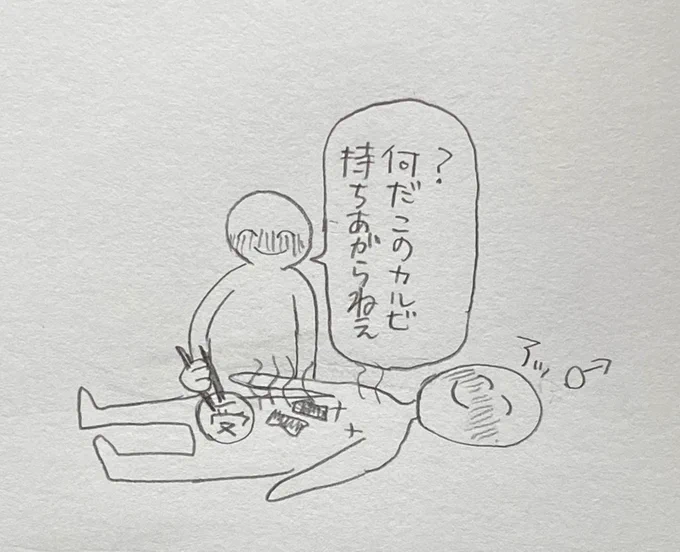 ?
何だこのカルビ
持ちあがらねえ
アッ
受